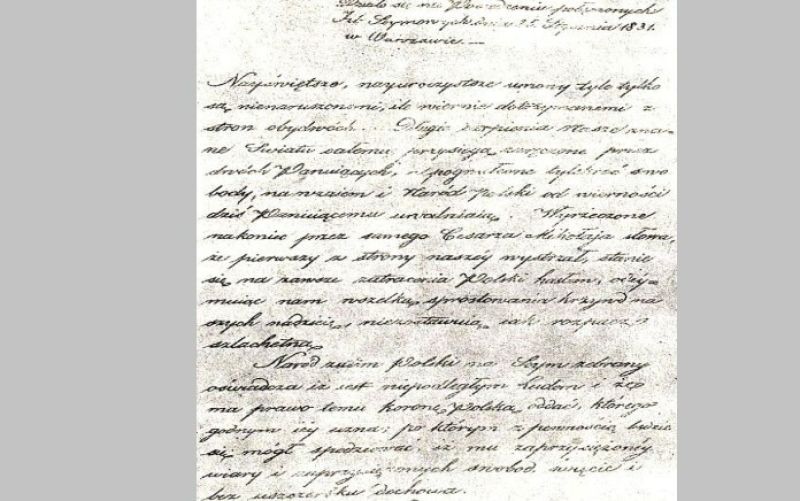 Działo się na Posiedzeniu połączonych
Izb Seymowych dnia 25 Stycznia 1831.
w Warszawie.—
Nayświętsze, nayuroczystsze umowy tyle tylko
są nienaruszonemi, ile wiernie dotrzymanemi z
stron obydwóch. Długie cierpienia nasze zna-
ne Światu całemu, przysięgą zaręczone przez
dwóch Panuiących, a pogwałcone tylekroć swo
body, nawzaiem i Naród Polski od wierności
dziś Panuiącemu uwalniaią. Wyrzeczone
nakoniec przez samego Cesarza Mikołaja słowa,
że pierwszy z strony naszéy wystrzał, stanie
się na zawsze zatracenia Polski hasłem, odey-
muiąc nam wszelką sprostowania krzywd na
szych nadzieię, niezostawuią iak rozpacz
szlachetną.
Naród zatém Polski na Seym zebrany
oświadcza iż iest niepodległym Ludem i że
ma prawo temu Koronę Polską oddać, którego
godnym iéy uzna; po którym z pewnością będzie
się mógł spodziewać, iż mu zaprzysiężonéy
wiary i zaprzysiężonych swobod święcie i
bez uszczerbku dochowa.